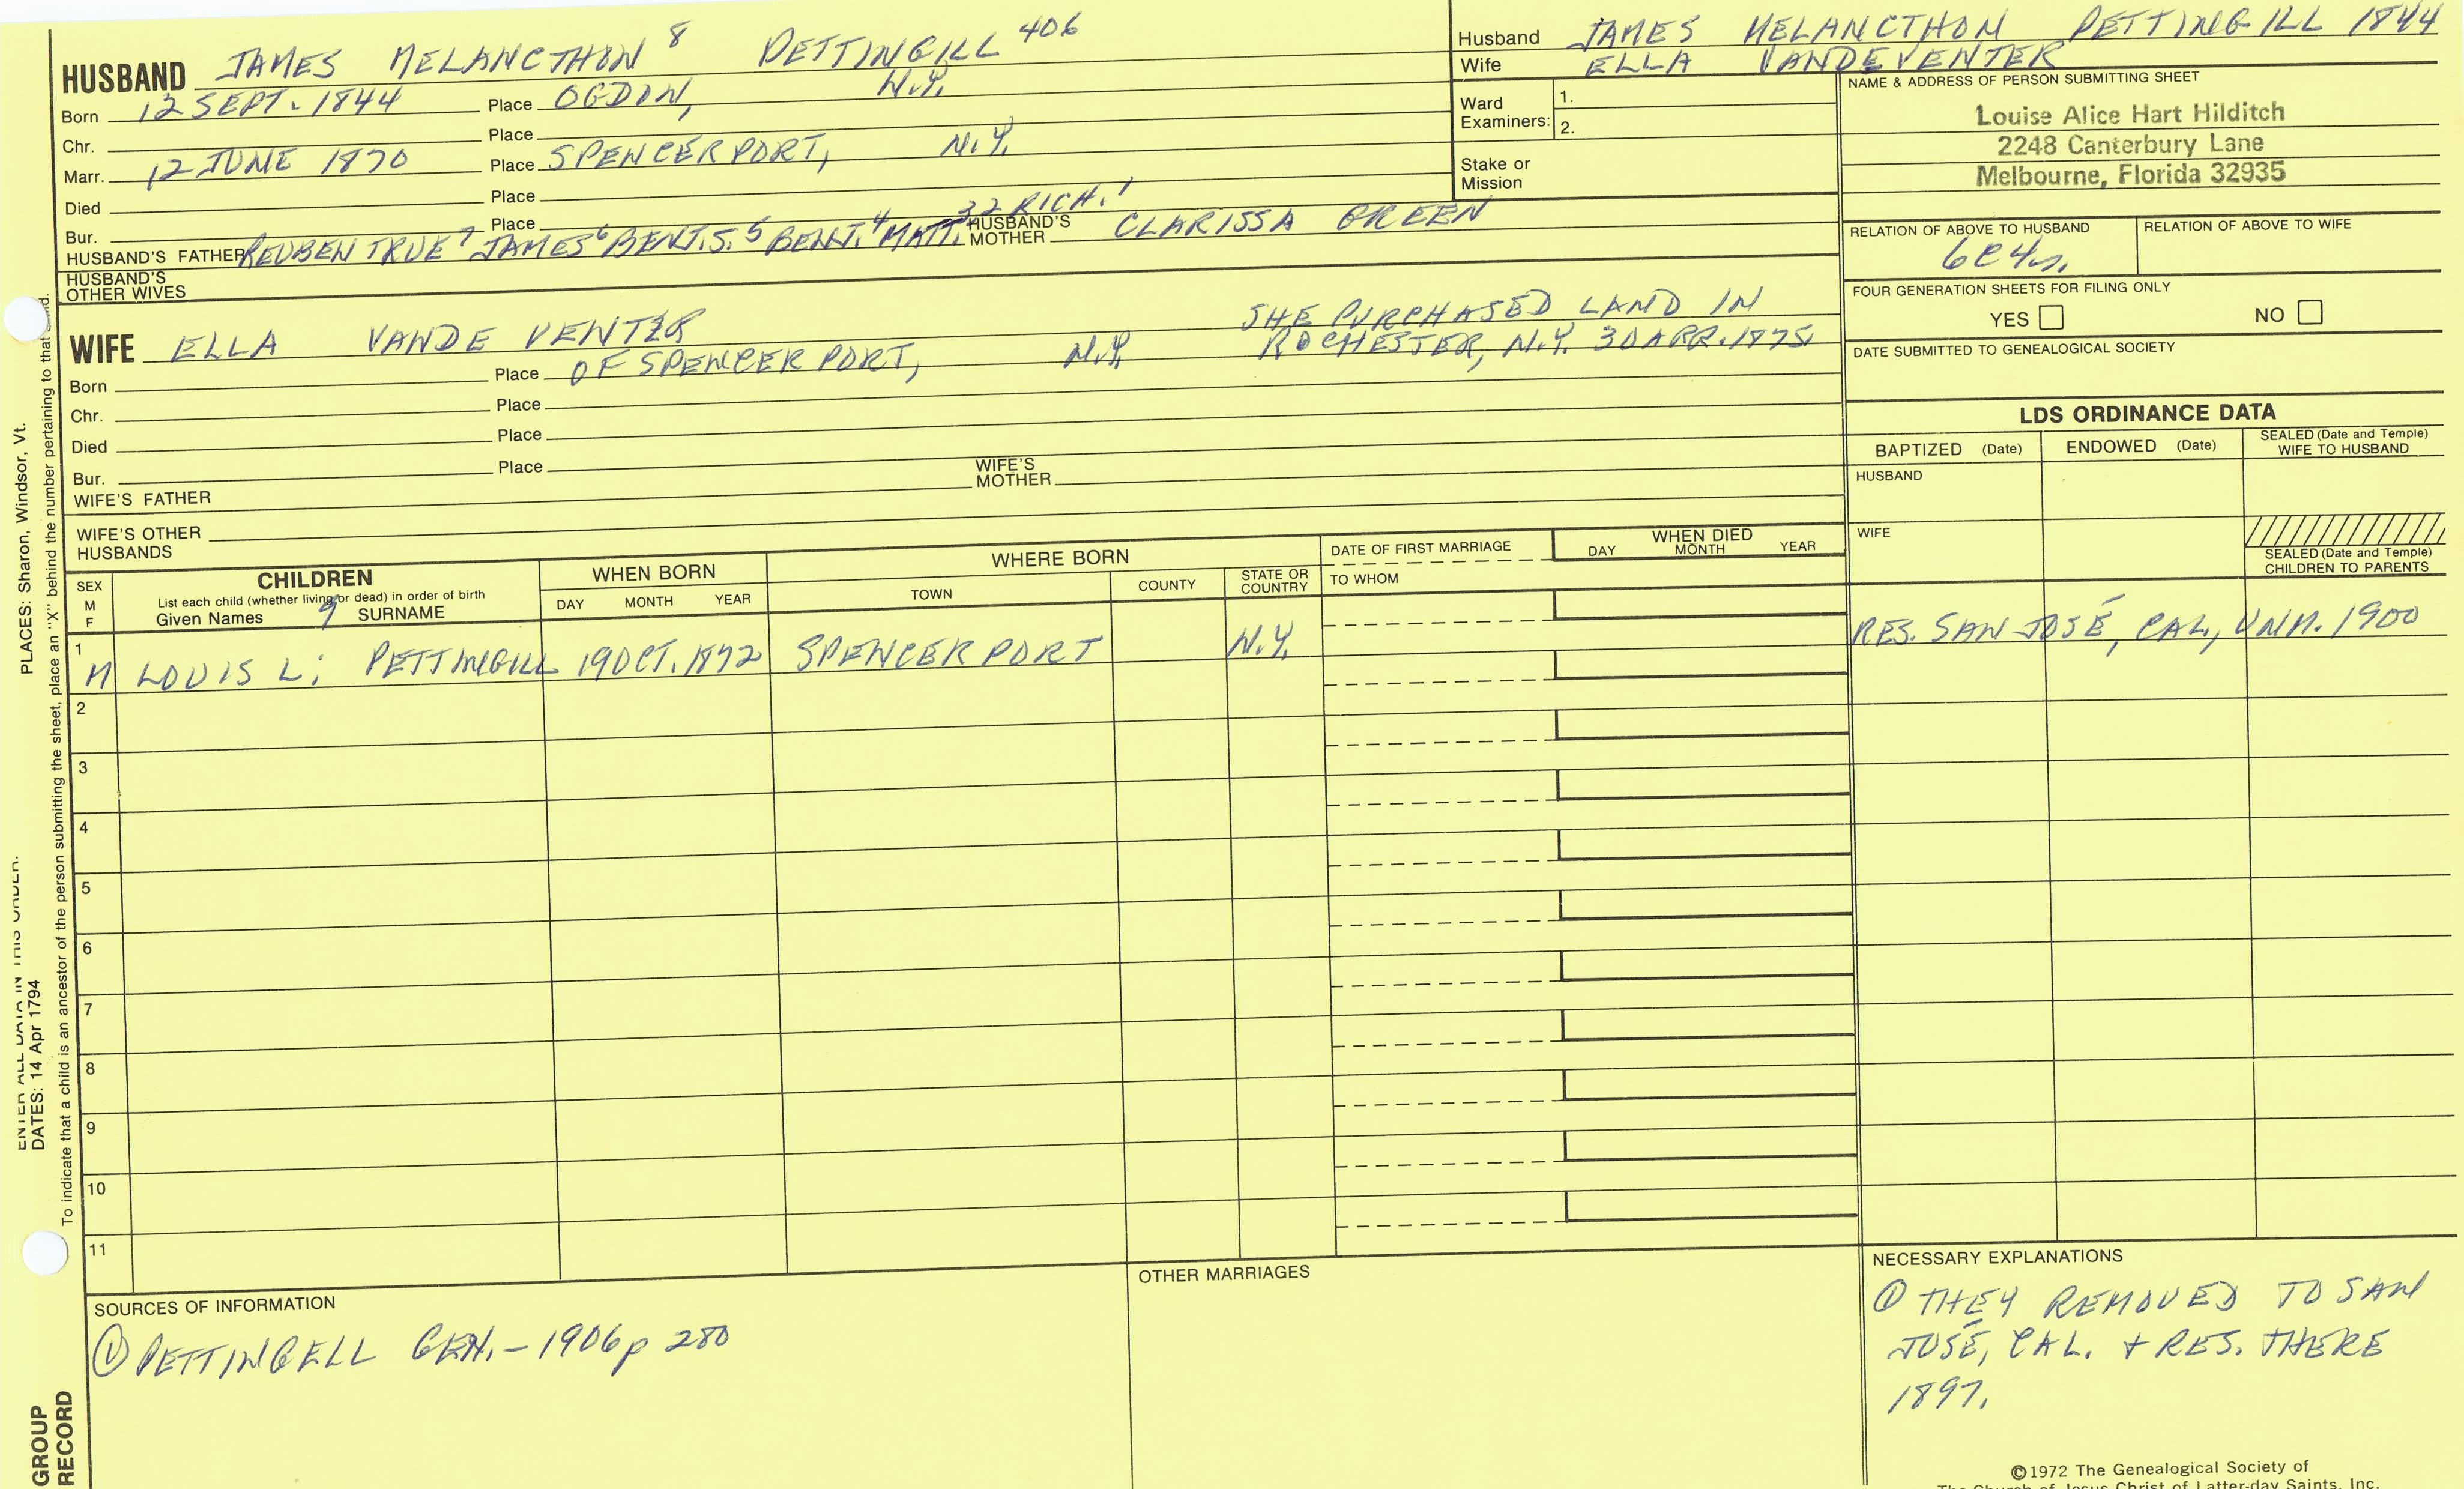 HUSBAND JAMES MELANCTHON 8 PETTINGILL 406
Born 12 SEPT. 1844 Place OGDON, N.Y.
Chr. Place
Marr. 12 JUNE 1870 Place SPENCERPORT, N.Y.
Died Place
Bur. Place
HUSBAND'S FATHER REUBEN TRUE 7 JAMES 6 BENJ. S. 5 BENJ. 4 MATT. 32 RICH. 1 HUSBAND'S MOTHER CLARISSA GREEN
HUSBAND'S OTHER WIVES
Husband JAMES MELANCTHON PETTINGILL 1844
Wife ELLA VANDEVENTER
Ward Examiners: 1.
2.
Stake or Mission
NAME & ADDRESS OF PERSON SUBMITTING SHEET
Louise Alice Hart Hilditch
2248 Canterbury Lane
Melbourne, Florida 32935
RELATION OF ABOVE TO HUSBAND RELATION OF ABOVE TO WIFE
6C4
FOUR GENERATION SHEETS FOR FILING ONLY
YES NO
DATE SUBMITTED TO GENEALOGICAL SOCIETY
WIFE ELLA VANDE VENTER
SHE PURCHASED LAND IN
ROCHESTER, N.Y. 30 APR. 1875
Born Place OF SPENCERPORT, N.Y.
Chr. Place
Died Place
Bur. Place
WIFE'S FATHER WIFE'S MOTHER
WIFE'S OTHER HUSBANDS
LDS ORDINANCE DATA
BAPTIZED (Date) ENDOWED (Date) SEALED (Date and Temple) WIFE TO HUSBAND
HUSBAND
WIFE
SEALED (Date and Temple) CHILDREN TO PARENTS
SEX M F
CHILDREN
List each child (whether living or dead) in order of birth
Given Names 9 SURNAME
WHEN BORN
DAY MONTH YEAR
WHERE BORN
TOWN COUNTY STATE OR COUNTRY
DATE OF FIRST MARRIAGE
TO WHOM
WHEN DIED
DAY MONTH YEAR
1 M LOUIS L. PETTINGILL 19 OCT. 1872 SPENCERPORT N.Y. RES. SAN JOSÉ, CAL., UNM. 1900
2
3
4
5
6
7
8
9
10
11
SOURCES OF INFORMATION
① PETTINGELL GEN. - 1906 p 280
OTHER MARRIAGES
NECESSARY EXPLANATIONS
① THEY REMOVED TO SAN
JOSÉ, CAL. + RES. THERE
1897.
©1972 The Genealogical Society of
The Church of Jesus Christ of Latter-day Saints, Inc.
ENTER ALL DATA IN THIS ORDER.
DATES: 14 Apr 1794 PLACES: Sharon, Windsor, Vt.
To indicate that a child is an ancestor of the person submitting the sheet, place an "X" behind the number pertaining to that
GROUP
RECORD